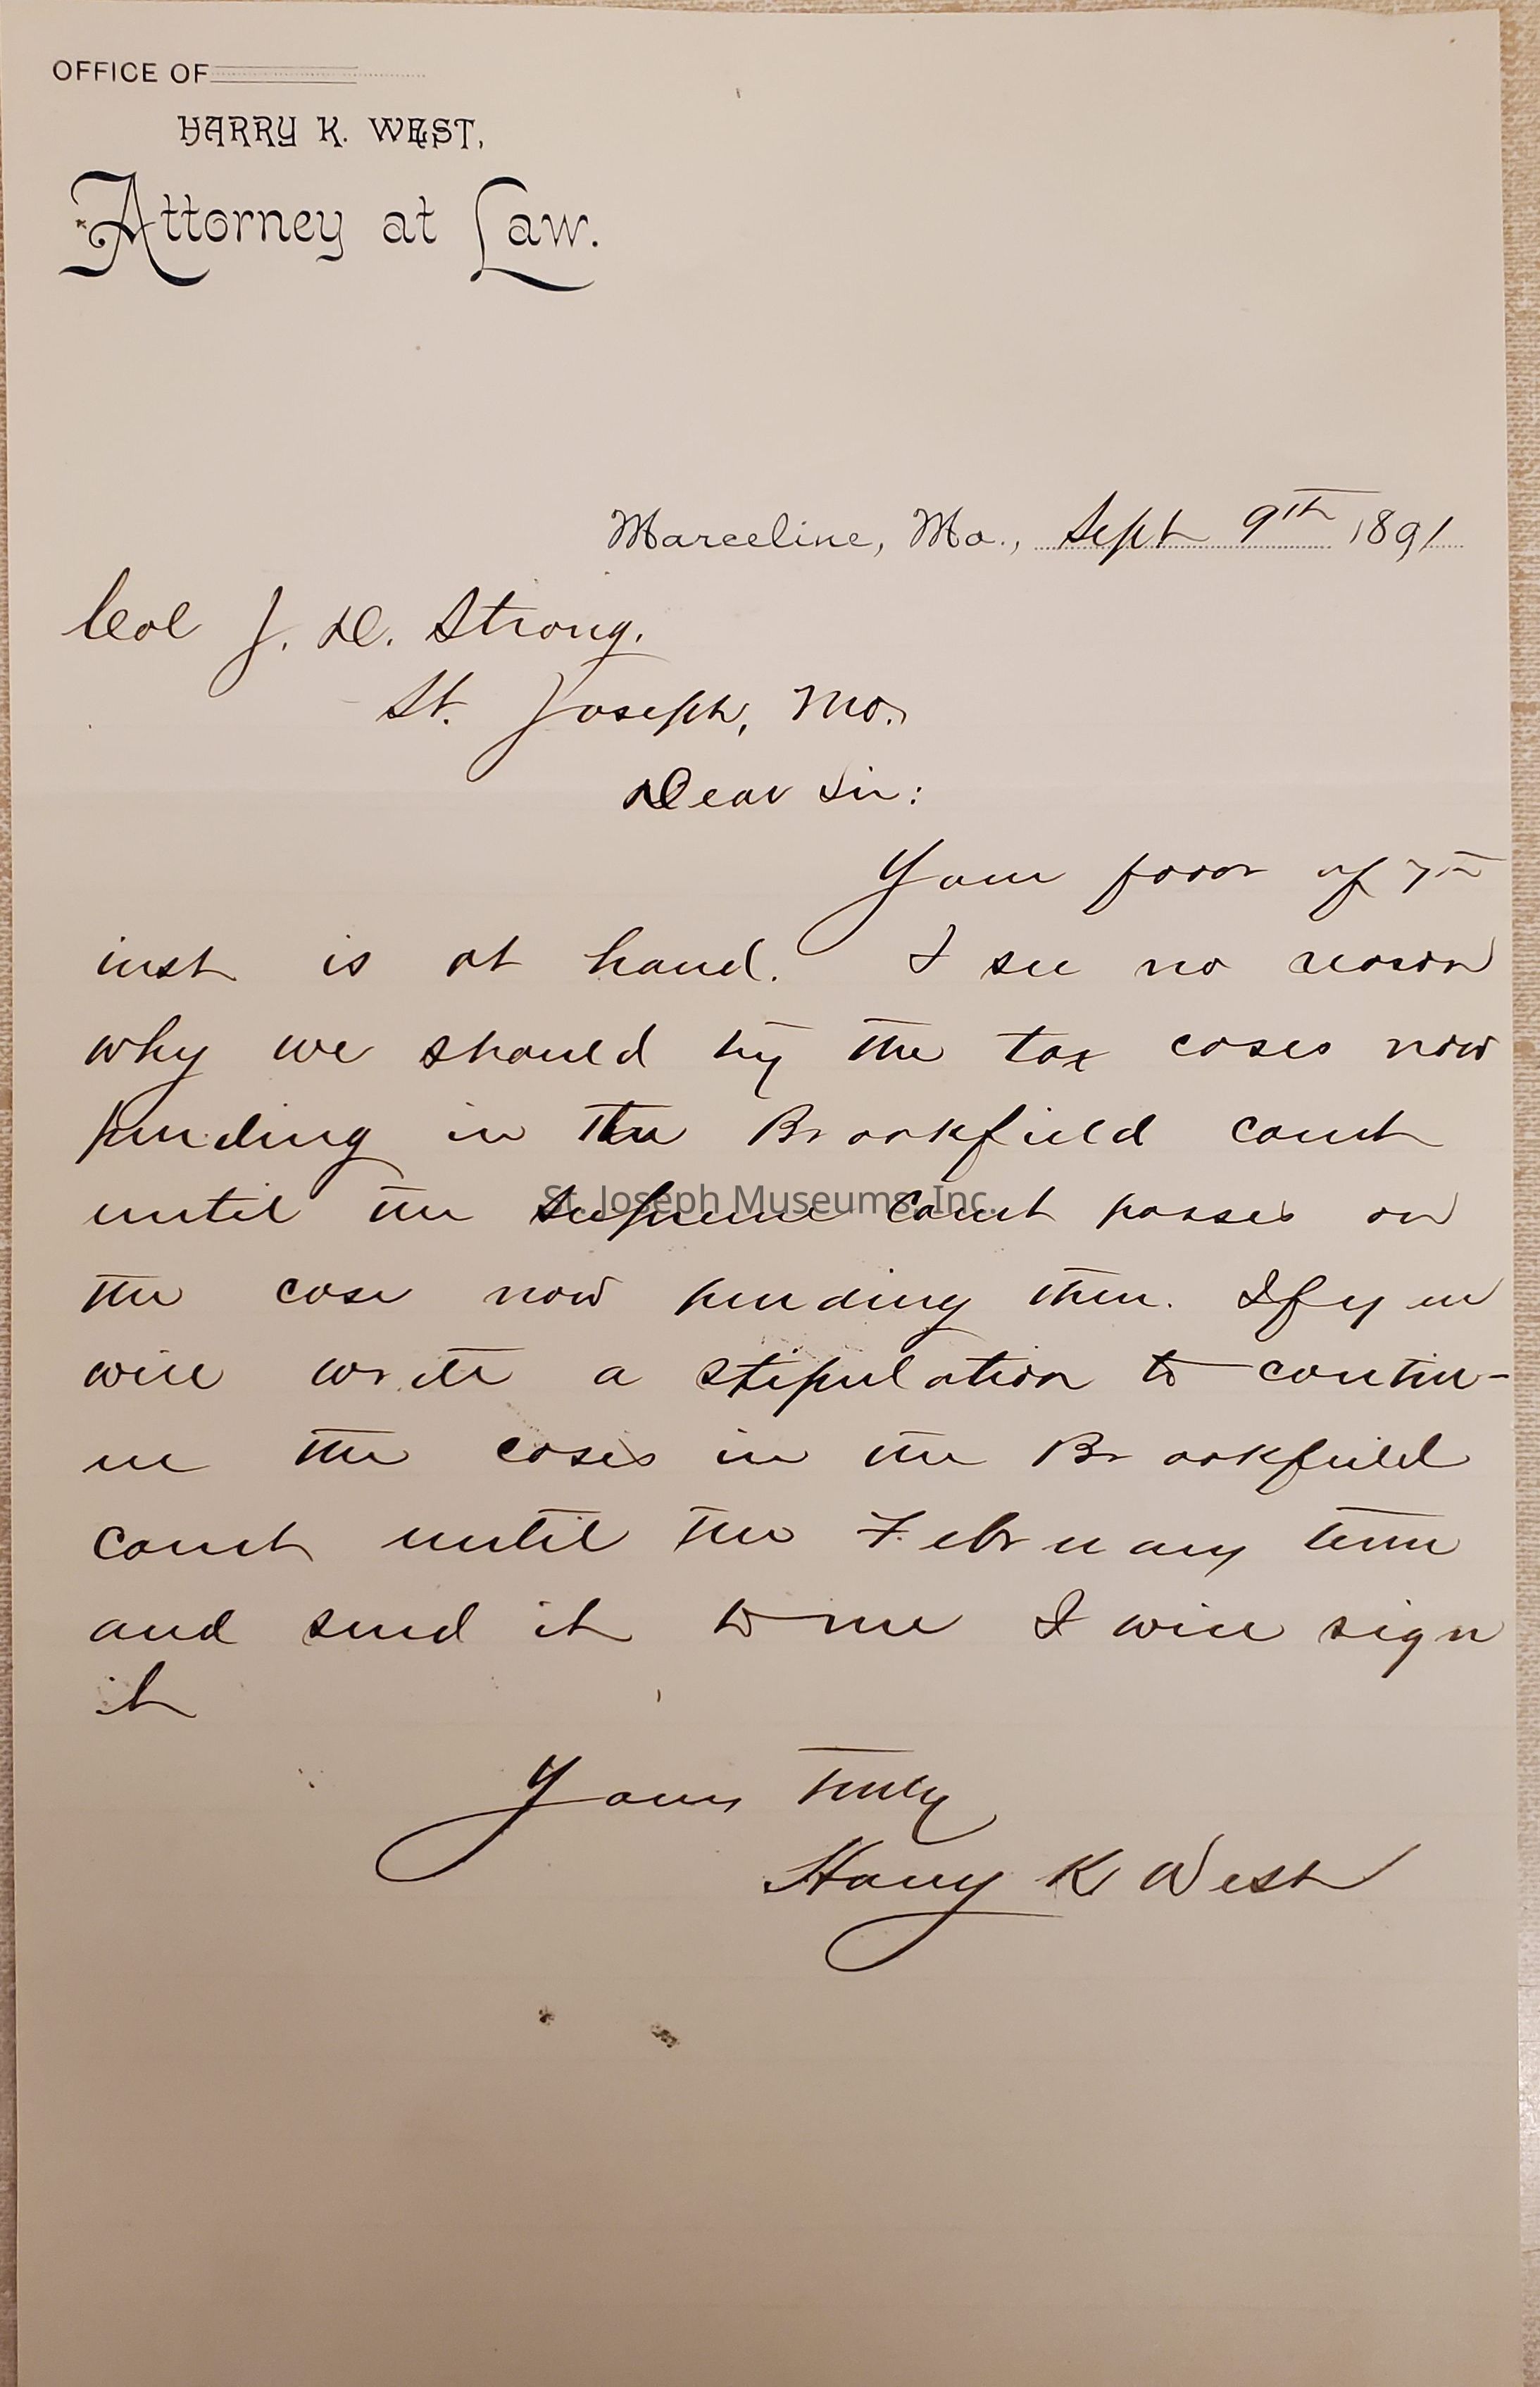 OFFICE OF
HARRY K. WEST,
Attorney at Law.
Marceline, Mo., Sept 9th 1891
Col J. D. Strong.
St. Joseph, Mo.
Dear Sir:
Your favor of 7th
inst is at hand. I see no reason
why we should try the tax cases now
pending in the Brookfield court
until the Supreme Court passes on
St. Joseph Museums, Inc.
the case now pending there. If you
will write a stipulation to contin-
ue the cases in the Brookfield
court until the February term
and send it to me I will sign
it
Yours truly
Harry K West